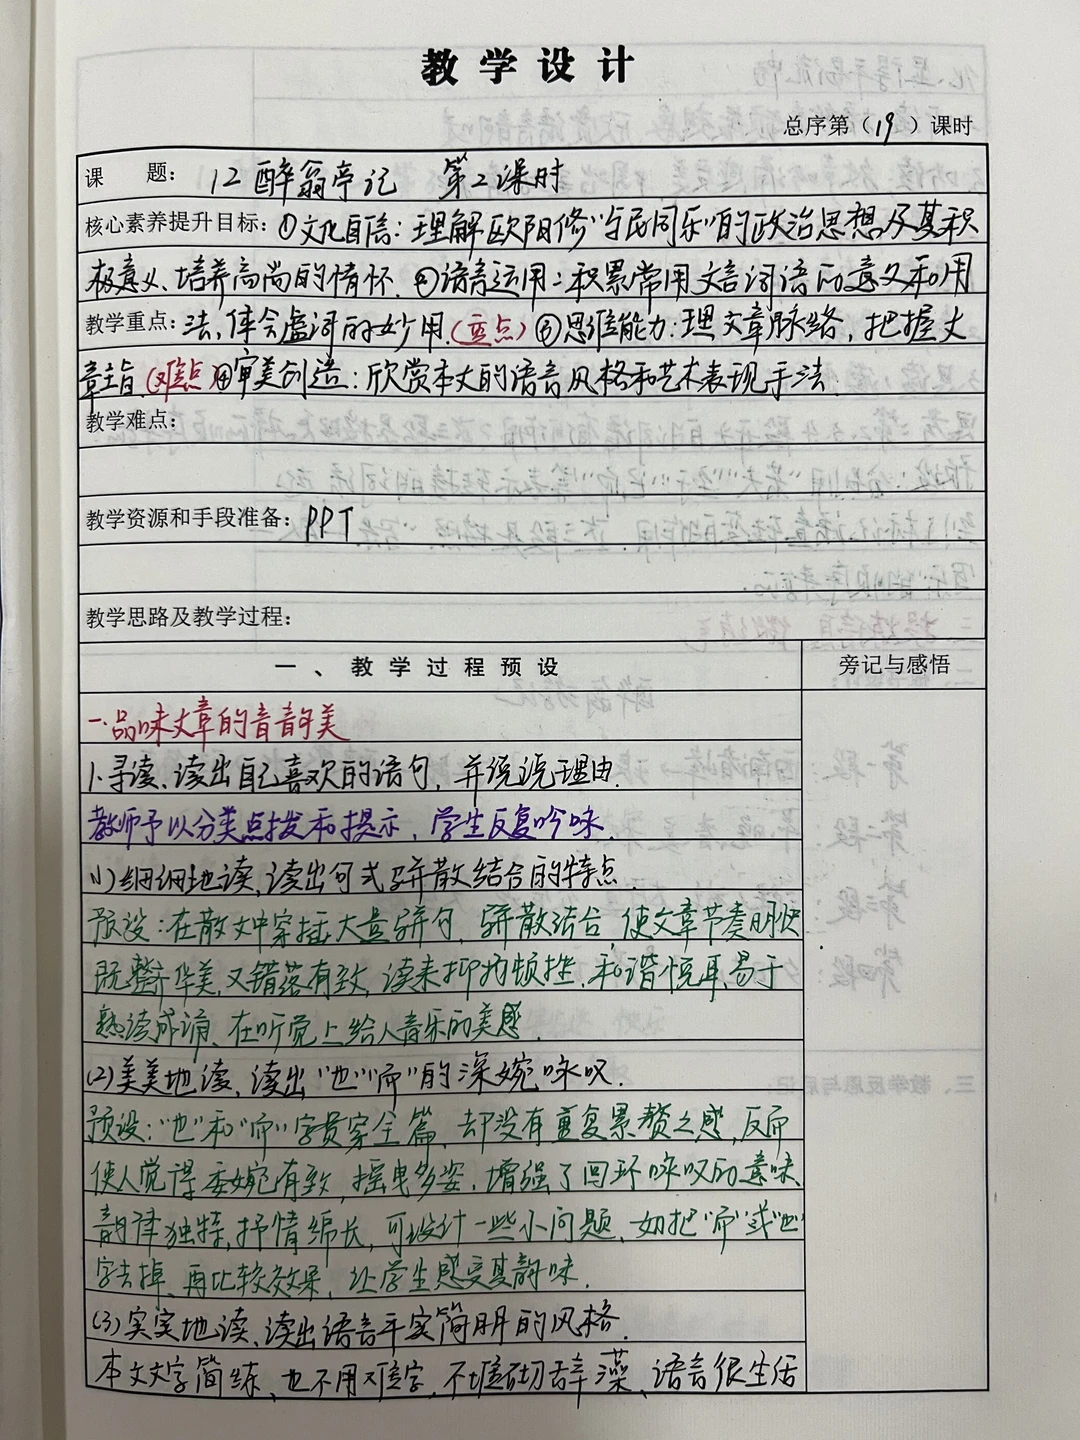 教学设计
总序第（19）课时
课 题：12 醉翁亭记 第2课时
核心素养提升目标：①文化自信：理解欧阳修"与民同乐"的政治思想及其积
极意义、培养高尚的情怀。②语言运用：积累常用文言词语的意义和用
教学重点：法，体会虚词的妙用。（重点）③思维能力：理文章脉络，把握文
章主旨（难点）④审美创造：欣赏本文的语言风格和艺术表现手法。
教学难点：
教学资源和手段准备：PPT
教学思路及教学过程：
一、教学过程预设 旁记与感悟
一.品味文章的音韵美
1.寻读、读出自己喜欢的语句，并说说理由.
教师予以分类点拨和提示，学生反复吟咏.
(1)细细地读、读出句式骈散结合的特点.
预设：在散文中穿插大量骈句，骈散结合，使文章节奏明快
既整齐华美，又错落有致，读来抑扬顿挫、和谐悦耳、易于
熟读成诵、在听觉上给人音乐的美感.
(2)美美地读、读出"也""而"的深婉咏叹.
预设："也"和"而"字贯穿全篇，却没有重复累赘之感，反而
使人觉得委婉有致，摇曳多姿，增强了回环咏叹的意味、
韵律独特，抒情绵长，可设计一些小问题、如把"而"或"也"
字去掉、再比较效果，让学生感受其韵味.
(3)实实地读、读出语言平实简明的风格.
本文文字简练、也不用难字，不堆砌辞藻、语言很生活